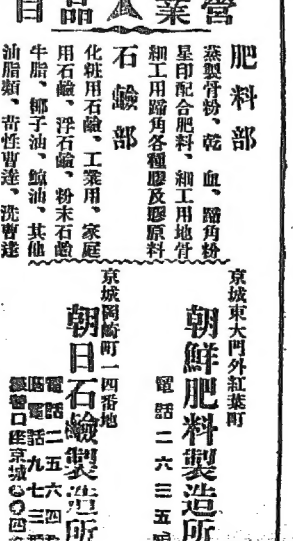 營業品目
肥料部
蒸製骨粉、乾血、蹄角粉
星印配合肥料、細工用地骨
細工用蹄角各種膠及膠原料
石鹼部
化粧用石鹼、工業用、家庭
用石鹼、浮石鹼、粉末石鹼
牛脂、椰子油、鯨油、其他
油脂類、苛性曹達、洗曹達
京城東大門外紅葉町
朝鮮肥料製造所
電話二六三五
京城岡崎町一四番地
朝日石鹼製造所
電話二五六四
電話九七三
振替口座京城